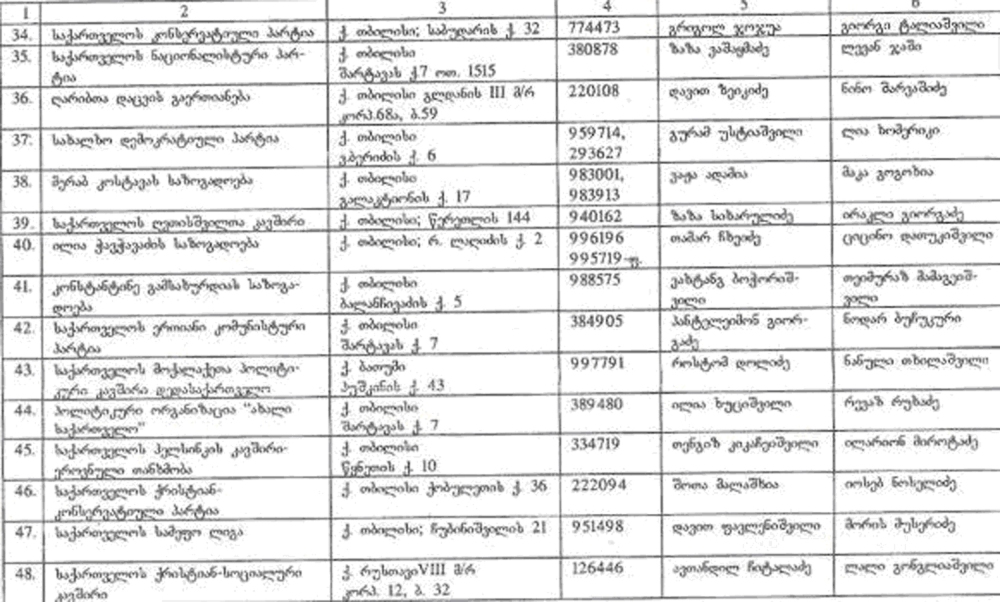 1 2 3 4 5 6
34. საქართველოს კონსერვატიული პარტია ქ. თბილისი; საბუდარის ქ. 32 774473 გრიგოლ ჯოჯუა გიორგი ტალიაშვილი
35. საქართველოს ნაციონალისტური პარ- ქ. თბილისი 380878 ზაზა ვაშაყმაძე ლევან ჯაში
ტია შარტავას ქ.7 ოთ. 1515
36. ღარიბთა დაცვის გაერთიანება ქ. თბილისი გლდანის III მ/რ 220108 დავით ზეიკიძე ნინო შარვაშიძე
კორპ.68ა, ბ.59
37. სახალხო დემოკრატიული პარტია ქ. თბილისი 959714, გურამ უსტიაშვილი ლია ხომერიკი
ვ.ბერიძის ქ. 6 293627
38. მერაბ კოსტავას საზოგადოება ქ. თბილისი 983001, ვაჟა ადამია მაკა გოგოხია
გალაკტიონის ქ. 17 983913
39. საქართველოს ღვთისშვილთა კავშირი ქ. თბილისი; წერეთლის 144 940162 ზაზა სიხარულიძე ირაკლი გიორგაძე
40. ილია ჭავჭავაძის საზოგადოება ქ. თბილისი; რ. ლაღიძის ქ. 2 996196 თამარ ჩხეიძე ციცინო დათუკიშვილი
995719-ფ.
41. კონსტანტინე გამსახურდიას საზოგა- ქ. თბილისი 988575 ვახტანგ ბოჭორიშ- თეიმურაზ მამაგეიშ-
დოება ბალანჩივაძის ქ. 5 ვილი ვილი
42. საქართველოს ერთიანი კომუნისტური ქ. თბილისი 384905 პანტელეიმონ გიორ- ნოდარ ბუჩუკური
პარტია შარტავას ქ. 7 გაძე
43. საქართველოს მოქალაქეთა პოლიტი- ქ. ბათუმი 997791 როსტომ დოლიძე ნანული თხილაშვილი
კური კავშირი დედასაქართველო პუშკინის ქ. 43
44. პოლიტიკური ორგანიზაცია “ახალი ქ. თბილისი 389480 ილია ხუციშვილი რევაზ რუხაძე
საქართველო” შარტავას ქ. 7
45. საქართველოს ჰელსინკის კავშირი- ქ. თბილისი 334719 თენგიზ კიკაჩეიშვილი ილარიონ მიროტაძე
ეროვნული თანხმობა წყნეთის ქ. 10
46. საქართველოს ქრისტიან- ქ. თბილისი ქობულეთის ქ. 36 222094 შოთა მალაშხია იოსებ ნოსელიძე
კონსერვატიული პარტია
47. საქართველოს სამეფო ლიგა ქ. თბილისი; ჩუბინიშვილის 21 951498 დავით ფავლენიშვილი მორის მუსერიძე
48. საქართველოს ქრისტიან-სოციალური ქ. რუსთავიVIII მ/რ 126446 ავთანდილ ჩიტალაძე ლალი გონგლიაშვილი
კავშირი კორპ. 12, ბ. 32